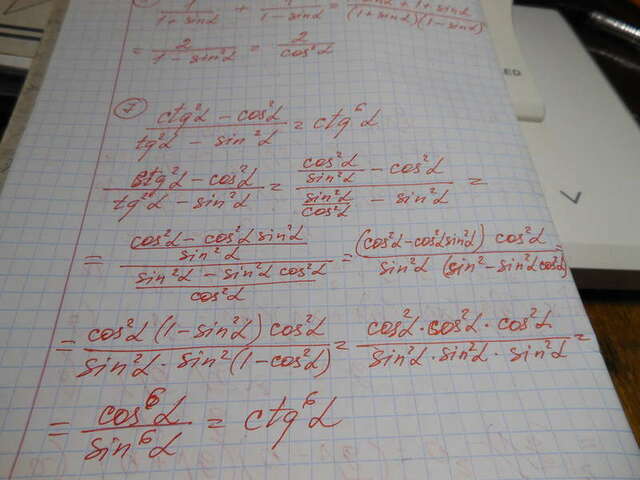 1/(1+sinα) + 1/(1-sinα) = (1-sinα+1+sinα)/((1+sinα)(1-sinα)) =
= 2/(1-sin²α) = 2/cos²α
⑦ (ctg²α - cos²α)/(tg²α - sin²α) = ctg⁶α
(ctg²α - cos²α)/(tg²α - sin²α) = (cos²α/sin²α - cos²α)/(sin²α/cos²α - sin²α) =
= ((cos²α - cos²α sin²α)/sin²α)/((sin²α - sin²α cos²α)/cos²α) = ((cos²α - cos²α sin²α) cos²α)/(sin²α (sin² - sin²α cos²α)) =
= (cos²α (1-sin²α) cos²α)/(sin²α · sin²(1-cos²α)) = (cos²α · cos²α · cos²α)/(sin²α · sin²α · sin²α) =
= cos⁶α/sin⁶α = ctg⁶α